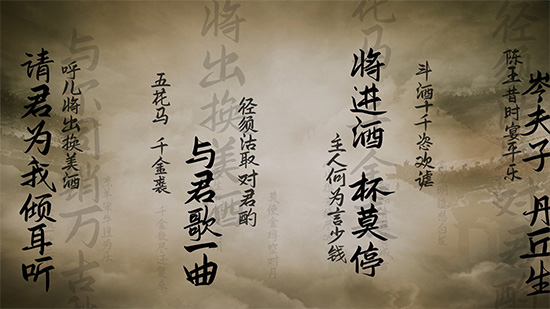 岑夫子 丹丘生
陈王昔时宴平乐
斗酒十千恣欢谑
将进酒 杯莫停
花马
主人何为言少钱
径须沽取对君酌
将出换美酒
与君歌一曲
五花马 千金裘
呼儿将出换美酒
与尔同销万古
请君为我倾耳听